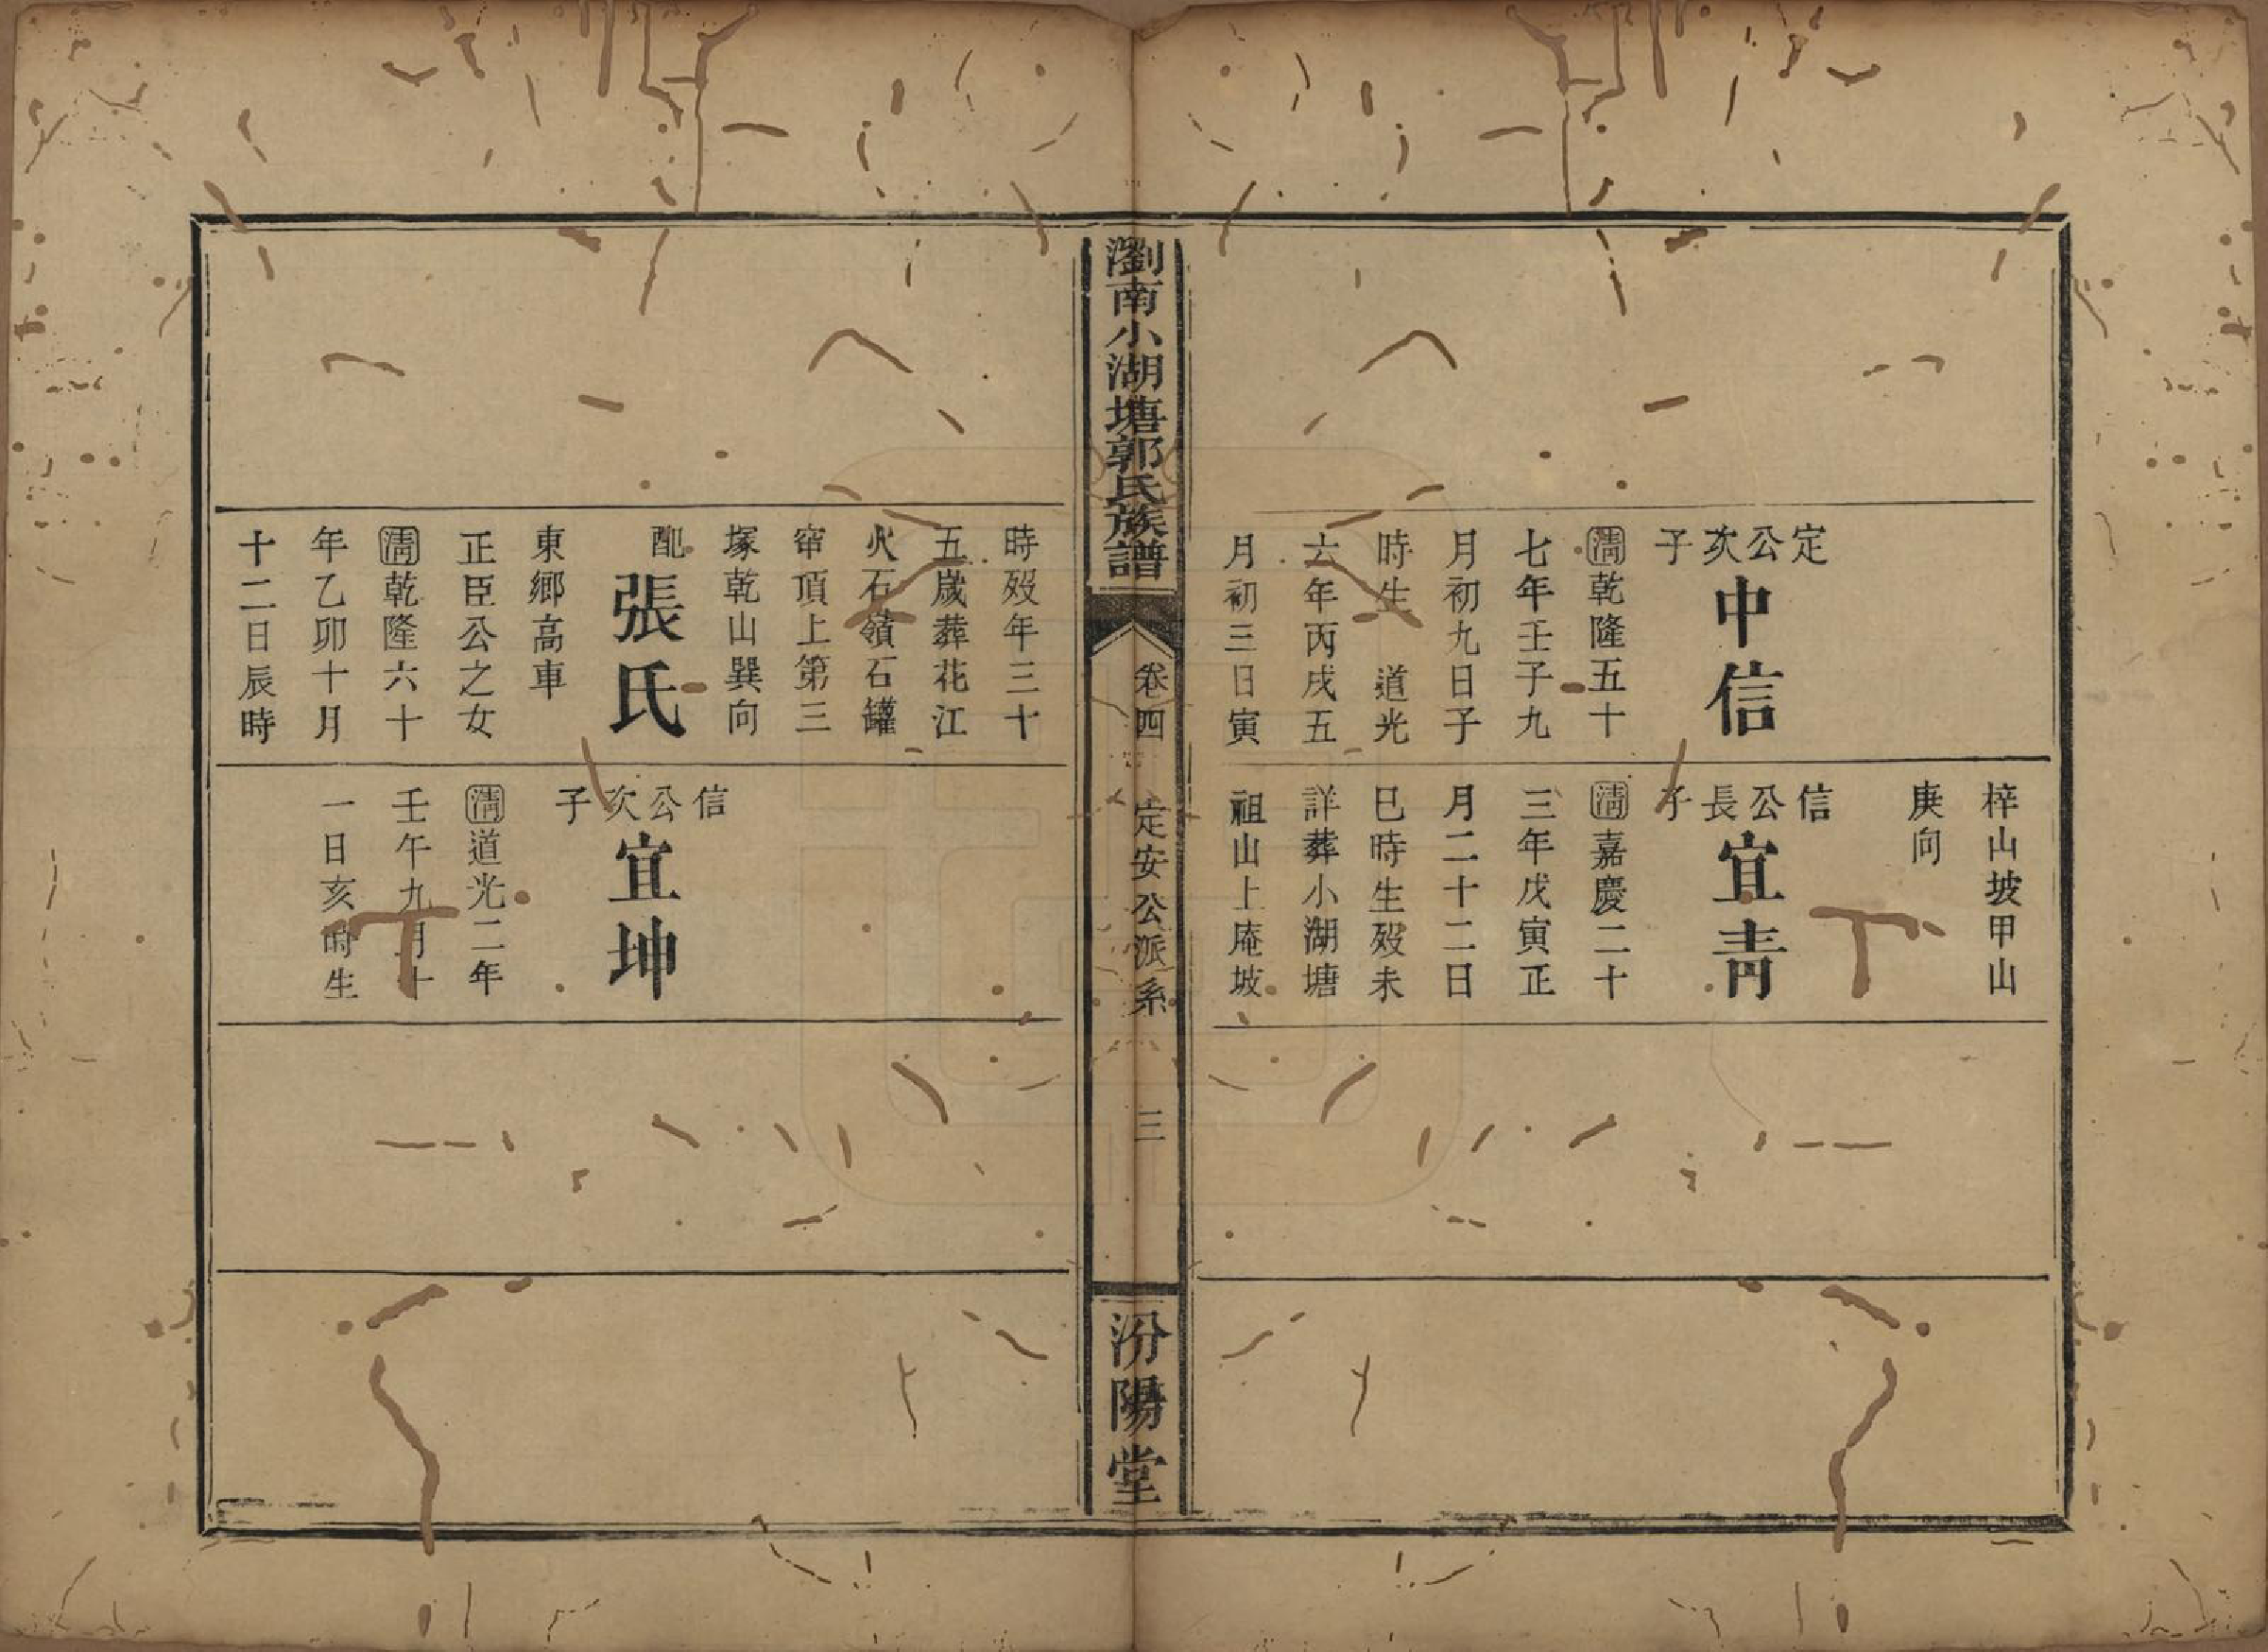 定公次子
中信
淸乾隆五十
七年壬子九
月初九日子
時生　道光
六年丙戌五
月初三日寅
梓山坡甲山
庚向
信公長子
宜靑
淸嘉慶二十
三年戊寅正
月二十二日
巳時生歿未
詳葬小湖塘
祖山上庵坡
瀏南小湖塘郭氏族譜
卷四
定安公派系
三
汾陽堂
時歿年三十
五歲葬花江
火石嶺石罐
窂頂上第三
塚乾山巽向
配張氏
東鄉高車
正臣公之女
淸乾隆六十
年乙卯十月
十二日辰時
信公次子
宜坤
淸道光二年
壬午九月十
一日亥時生